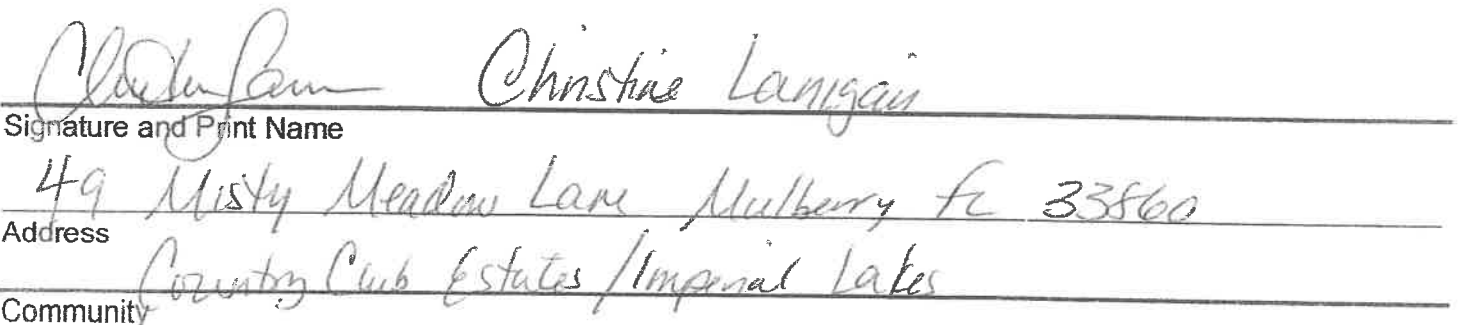 Christine Lanigan
Signature and Print Name
49 Misty Meadow Lane Mulberry FL 33860
Address
Country Club Estates / Imperial Lakes
Community